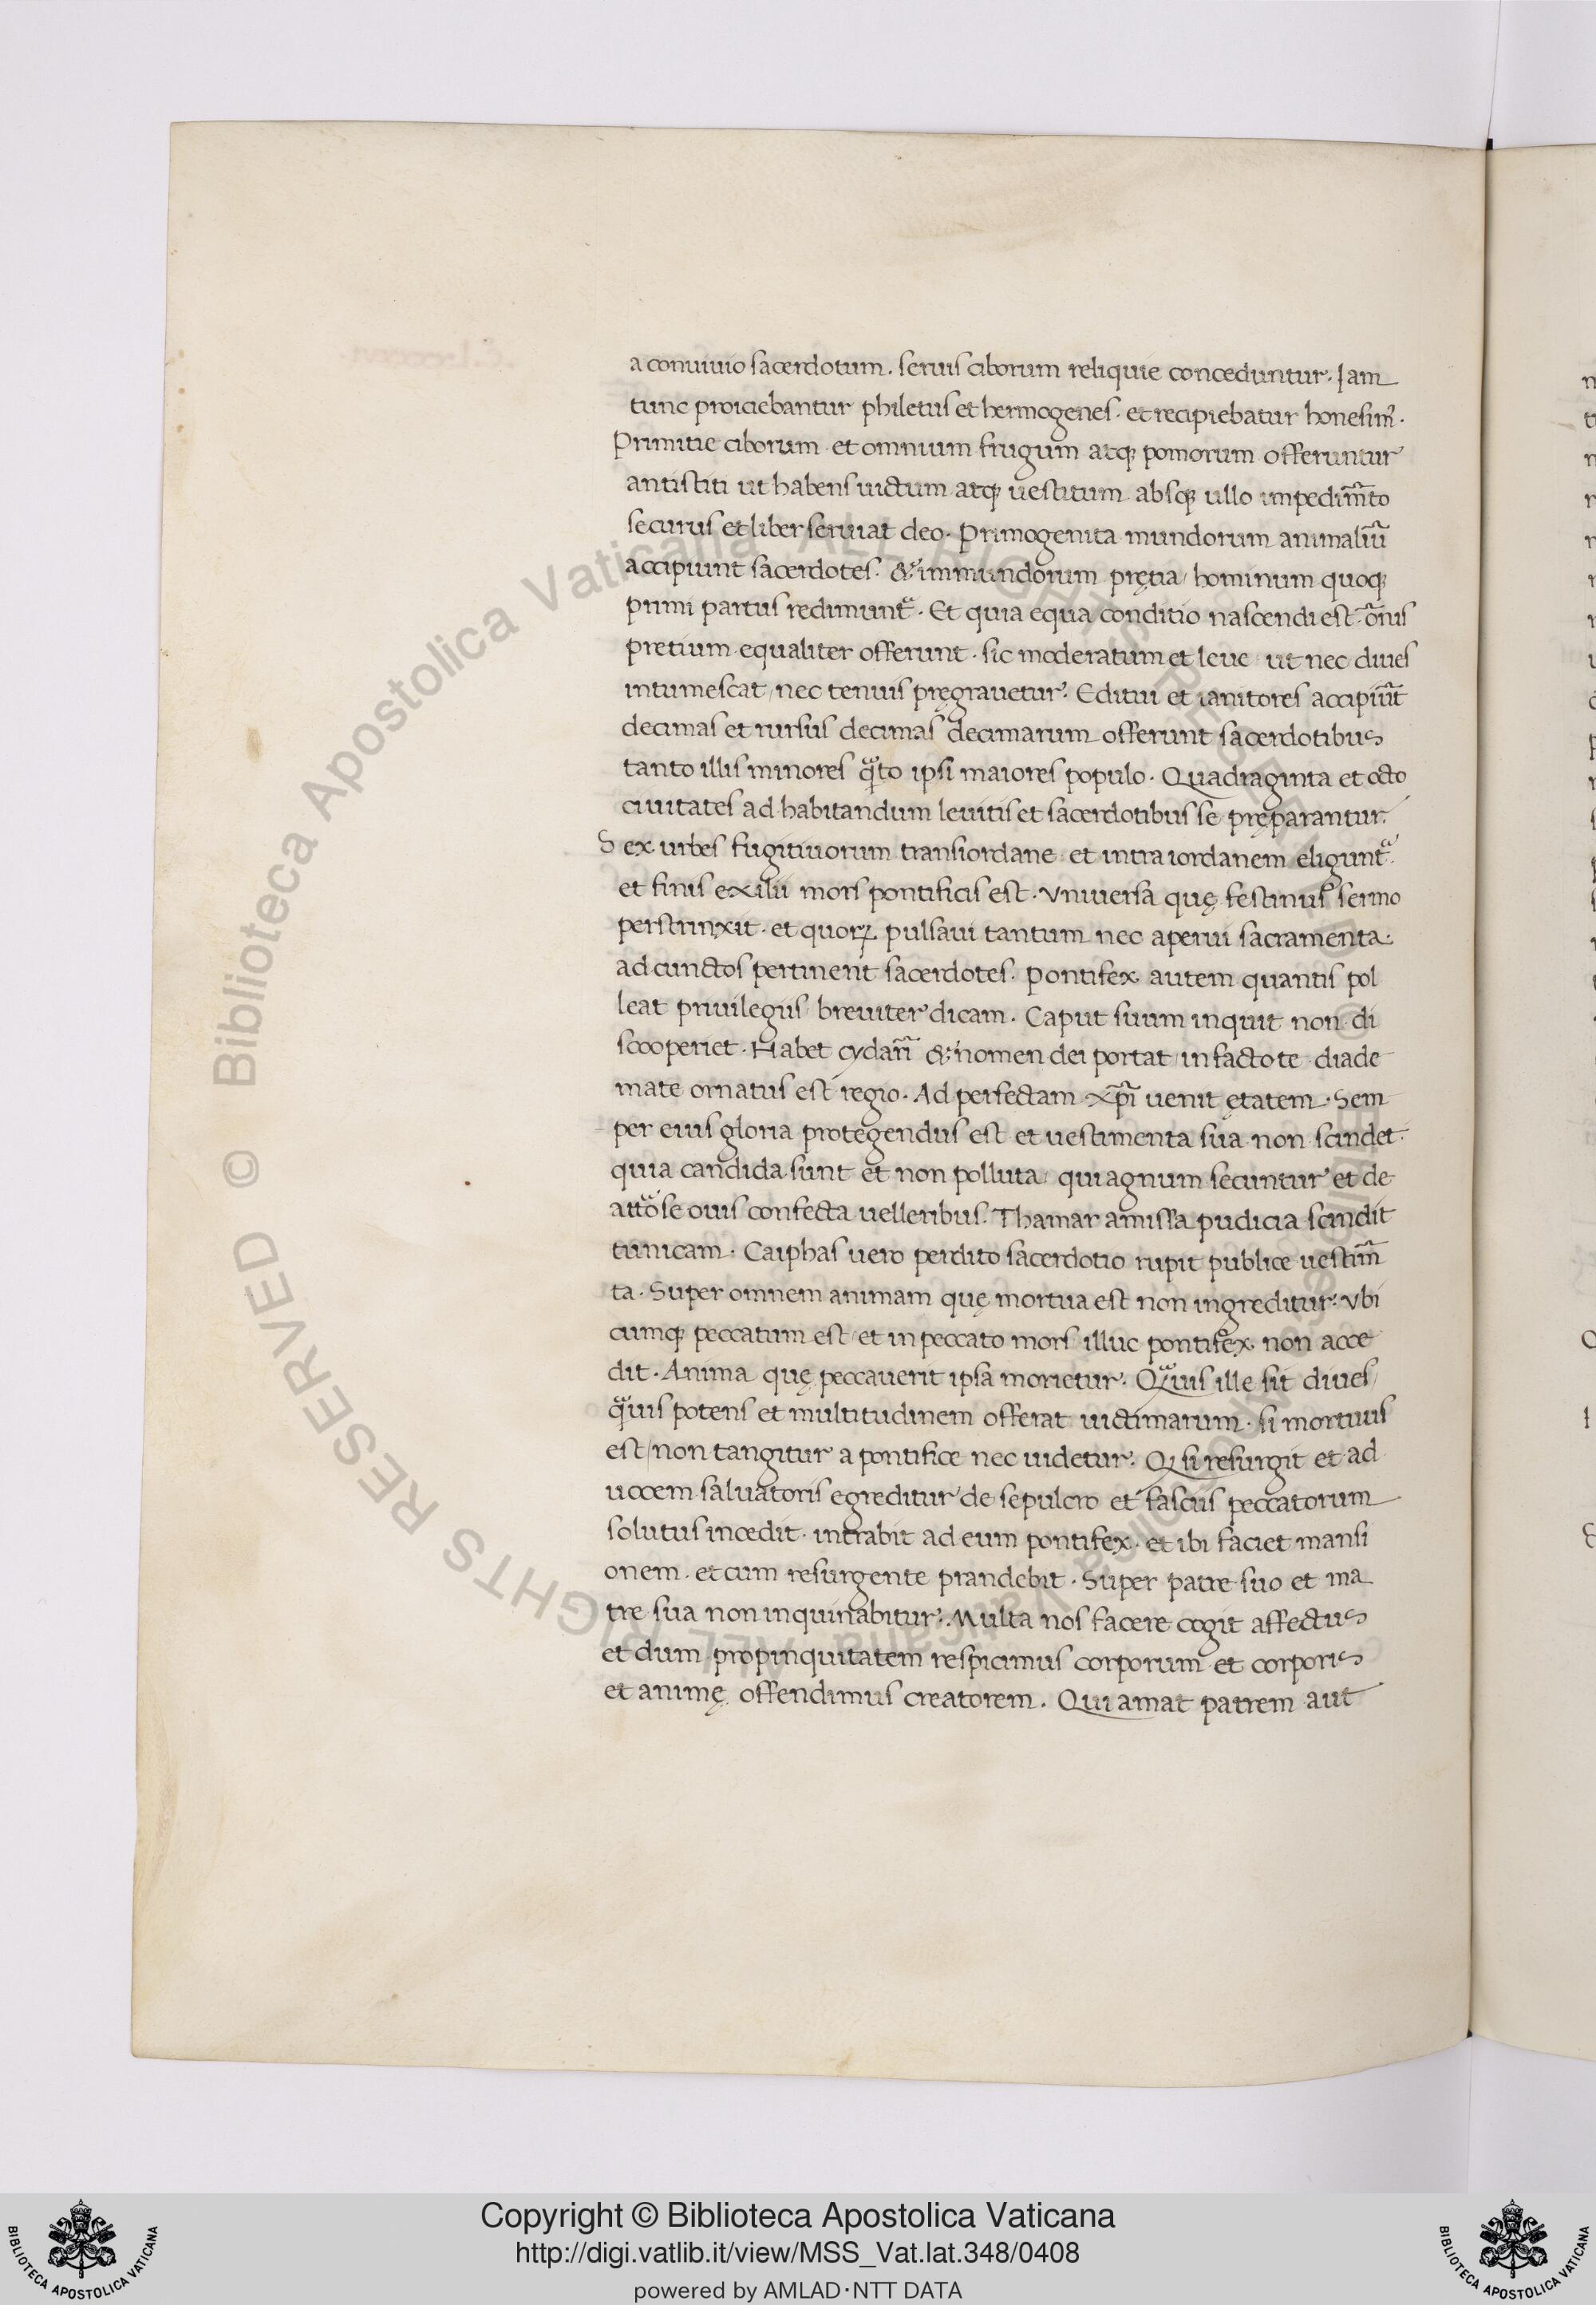 a conuiuio sacerdotum. seruis ciborum reliquie conceduntur. Iam
tunc proiciebantur philetus et hermogenes. et recipiebatur honesim᷒.
Primitie ciborum et omnium frugum atqꝫ pomorum offeruntur
antistiti ut habens uictum atqꝫ uestitum absqꝫ ullo impedim̃to
securus et liber seruiat deo. Primogenita mundorum animaliũ
accipiunt sacerdotes. & immundorum pretia / hominum quoqꝫ
primi partus redimunt᷒. Et quia equa conditio nascendi est. õnis
pretium equaliter offerunt. sic moderatum et leue ut nec diues
intumescat / nec tenuis pręgrauetur. Editui et ianitores accipiũt
decimas et rursus decimas decimarum offerunt sacerdotibus
tanto illis minores qᷓto ipsi maiores populo. Quadraginta et octo
ciuitates ad habitandum leuitis et sacerdotibus se pręparantur.
Sex urbes fugitiuorum transiordane et intra iordanem eligunt᷒.
et finis exilii mors pontificis est. Vniuersa quę festinus sermo
perstrinxit. et quorꝝ pulsaui tantum nec aperui sacramenta.
ad cunctos pertinent sacerdotes. Pontifex autem quantis pol
leat priuilegiis breuiter dicam. Caput suum inquit non di
scooperiet. Habet cydarĩ & nomen dei portat in facto te diade
mate ornatus est regio. Ad perfectam xp̃i uenit ętatem. Sem
per eius gloria protegendus est et uestimenta sua non scindet.
quia candida sunt et non polluta. qui agnum secuntur et de
attõse ouis confecta uelleribus. Thamar amissa pudicia scindit
tunicam. Caiphas uero perdito sacerdotio rupit publice uestim̃
ta. Super omnem animam quę mortua est non ingreditur. Vbi
cumqꝫ peccatum est / et in peccato mors illuc pontifex non acce
dit. Anima quę peccauerit ipsa morietur. Qᷓuis ille sit diues /
qᷓuis potens et multitudinem offerat uictimarum. si mortuus
est / non tangitur a pontifice nec uidetur. Qꝫ si resurgit et ad
uocem saluatoris egreditur de sepulcro et fasciis peccatorum
solutus incedit. intrabit ad eum pontifex. et ibi faciet mansi
onem. et cum resurgente prandebit. Super patre suo et ma
tre sua non inquinabitur. Multa nos facere cogit affectus
et dum propinquitatem respicimus corporum et corporis
et animę offendimus creatorem. Qui amat patrem aut
© Biblioteca Apostolica Vaticana ALL RIGHTS RESERVED
© Biblioteca Apostolica Vaticana ALL RIGHTS RESERVED
Copyright © Biblioteca Apostolica Vaticana
http://digi.vatlib.it/view/MSS_Vat.lat.348/0408
powered by AMLAD·NTT DATA
BIBLIOTECA APOSTOLICA VATICANA
BIBLIOTECA APOSTOLICA VATICANA